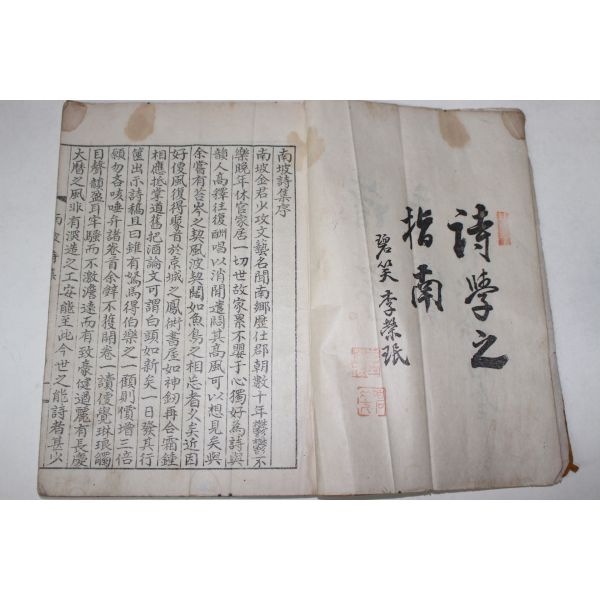 詩學之
指南
碧笑 李榮珉
南坡詩集序
南坡金君少攻文藝名聞南鄉歷仕郡朝數十年鬱鬱不
樂晚年休官家居一切世故家累不嬰于心獨好為詩與
韻人高釋往復酬唱以消閒遣悶其高風可以想見矣與
余嘗有苔岑之契風波契闊如魚鳥之相忘者久矣近因
好便風復得聚首於京城之鳳街書屋如神釰再合霜鍾
相應抵掌道舊把酒論文可謂白頭如新矣一日發其行
篋出示詩稿且曰雖有駑馬得伯樂之一顧則價增三倍
願勿吝咳唾弁諸卷首余辭不獲開卷一讀便覺琳琅觸
目聲韻盈耳牢騷而不激澹遠而有致豪健過麗有長慶
大曆之風非有深造之工安能至此今世之能詩者甚少
南坡詩集